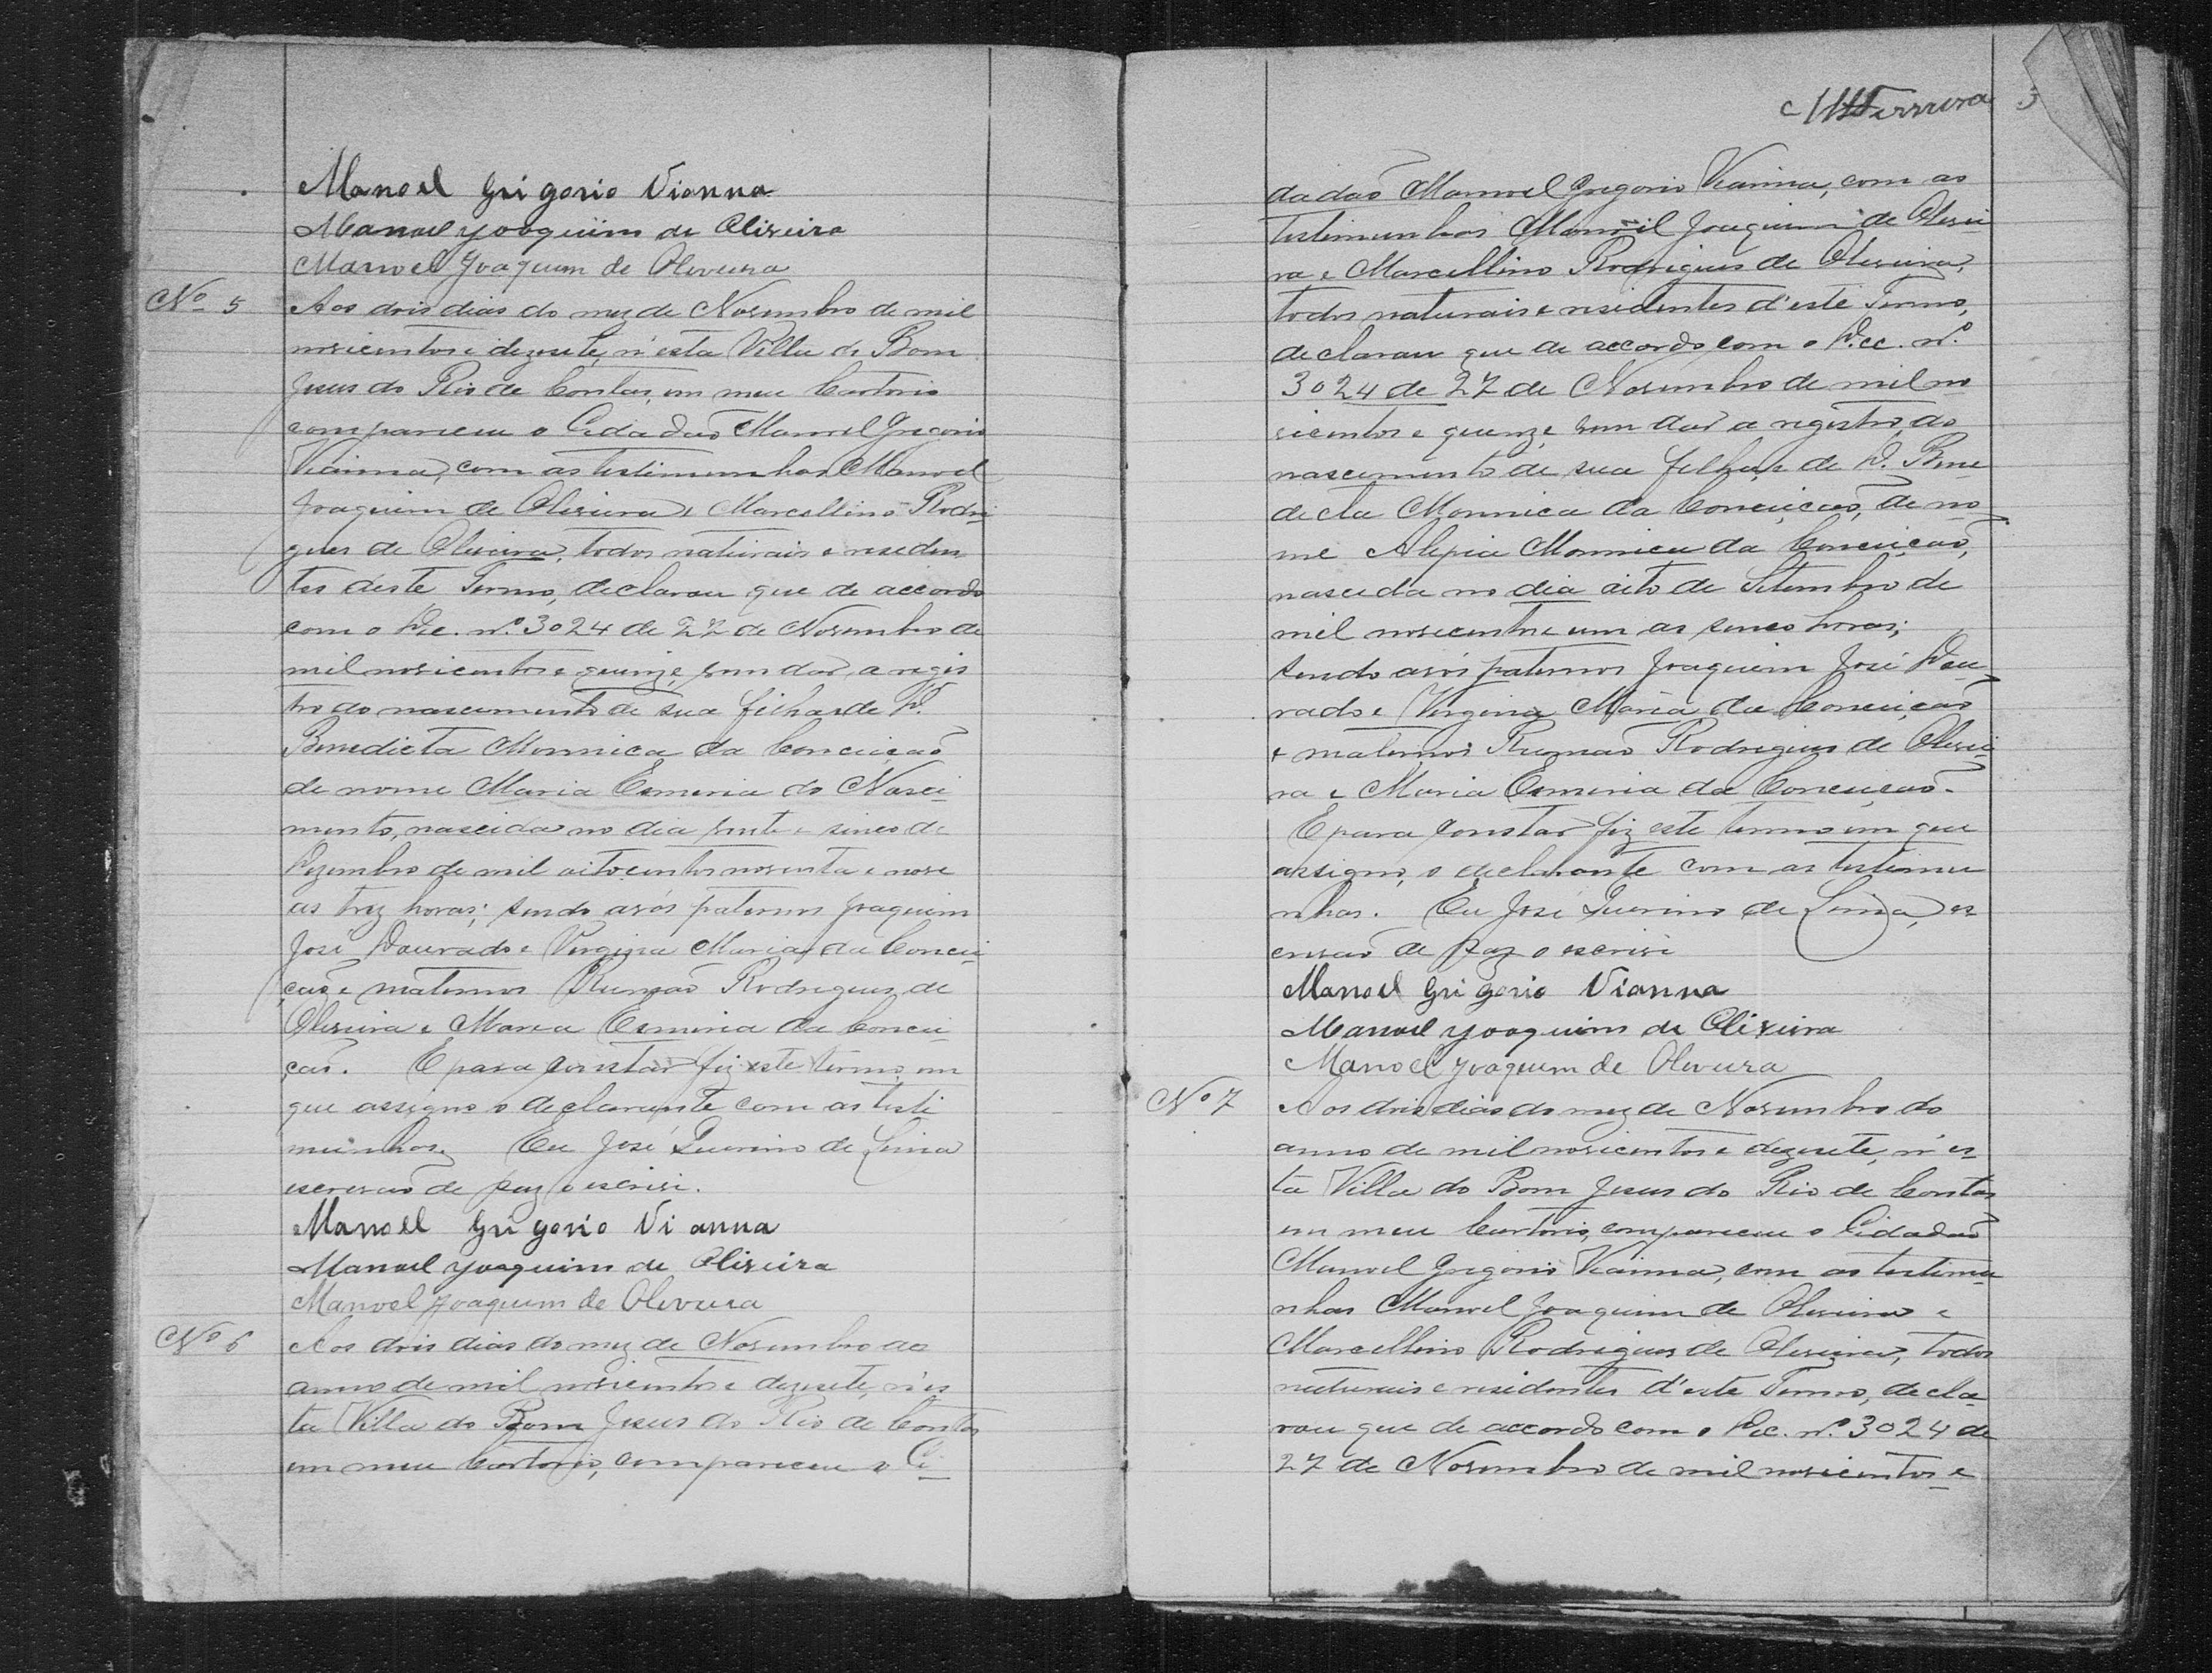 Manoel Grigorio Vianna
Manoel Joaquim de Oliveira
Manoel Joaquim de Oliveira
Nº 5
Aos dois dias do mez de Novembro de mil
novicentos e dezesete, n'esta Villa do Bom
Jesus do Rio de Contas, em meu Cartorio
compareceu o Cidadão Manoel Gregorio
Vianna, com as testimunhas Manoel
Joaquim de Oliveira e Marcellino Rodri-
gues de Oliveira, todos naturais e residen
tes deste Termo, declarou que de accordo
com o Dec. nº 3024 de 27 de Novembro de
mil novicentos e quinze, vem dar a regis
tro do nascimento de sua filha e de D.
Benedicta Monnica da Conceição
de nome Maria Esmeria do Nasci-
mento, nascida no dia vinte e sinco de
Dezembro de mil oitocentos noventa e nove
as trez horas; sendo avós paternos Joaquim
José Dourado e Virginia Maria da Concei-
ção e maternos Rumão Rodrigues de
Oliveira e Maria Esmeria da Concei-
ção. E para constar fiz este termo em
que assigno o declarante com as testi
munhas. Eu José Querino de Lima
escrevão de paz o escrivi.
Manoel Grigorio Vianna
Manoel Joaquim de Oliveira
Manoel Joaquim de Oliveira
Nº 6
Aos dois dias do mez de Novembro do
anno de mil novicentos e dezesete, n'es
ta Villa do Bom Jesus do Rio de Contas
em meu Cartorio, compareceu o Ci-
Ferreira
dadão Manoel Gregorio Vianna, com as
testimunhas Manoel Joaquim de Olivei
ra e Marcellino Rodrigues de Oliveira,
todos naturais e residentes d'este Termo,
declarou que de accordo com o Dec. nº
3024 de 27 de Novembro de mil no
vicentos e quinze, vem dar a registro, do
nascimento de sua filha, e de D. Bene
decta Monnica da Conceição, de no-
me Monnica da Conceição,
nascida no dia oito de Setembro de
mil novicentos e um as sinco horas;
sendo avós paternos Joaquim José Dou-
rado e Virginia Maria da Conceição
e maternos Rumão Rodrigues de Olivei-
ra e Maria Esmeria da Conceição.
E para constar fiz este termo em que
assigno, o declarante com as testimu
nhas. Eu José Querino de Lima, es
crivão de paz o escrivi
Manoel Grigorio Vianna
Manoel Joaquim de Oliveira
Manoel Joaquim de Oliveira
Nº 7
Aos dois dias do mez de Novembro do
anno de mil novicentos e dezesete, n'es-
ta Villa do Bom Jesus do Rio de Contas
em meu Cartorio, compareceu o Cidadão
Manoel Gregorio Vianna, com as testimu-
nhas Manoel Joaquim de Oliveira e
Marcellino Rodrigues de Oliveira, todos
naturais e residentes d'este Termo, decla-
rou que de accordo com o Dec. nº 3024 de
27 de Novembro de mil novicentos e